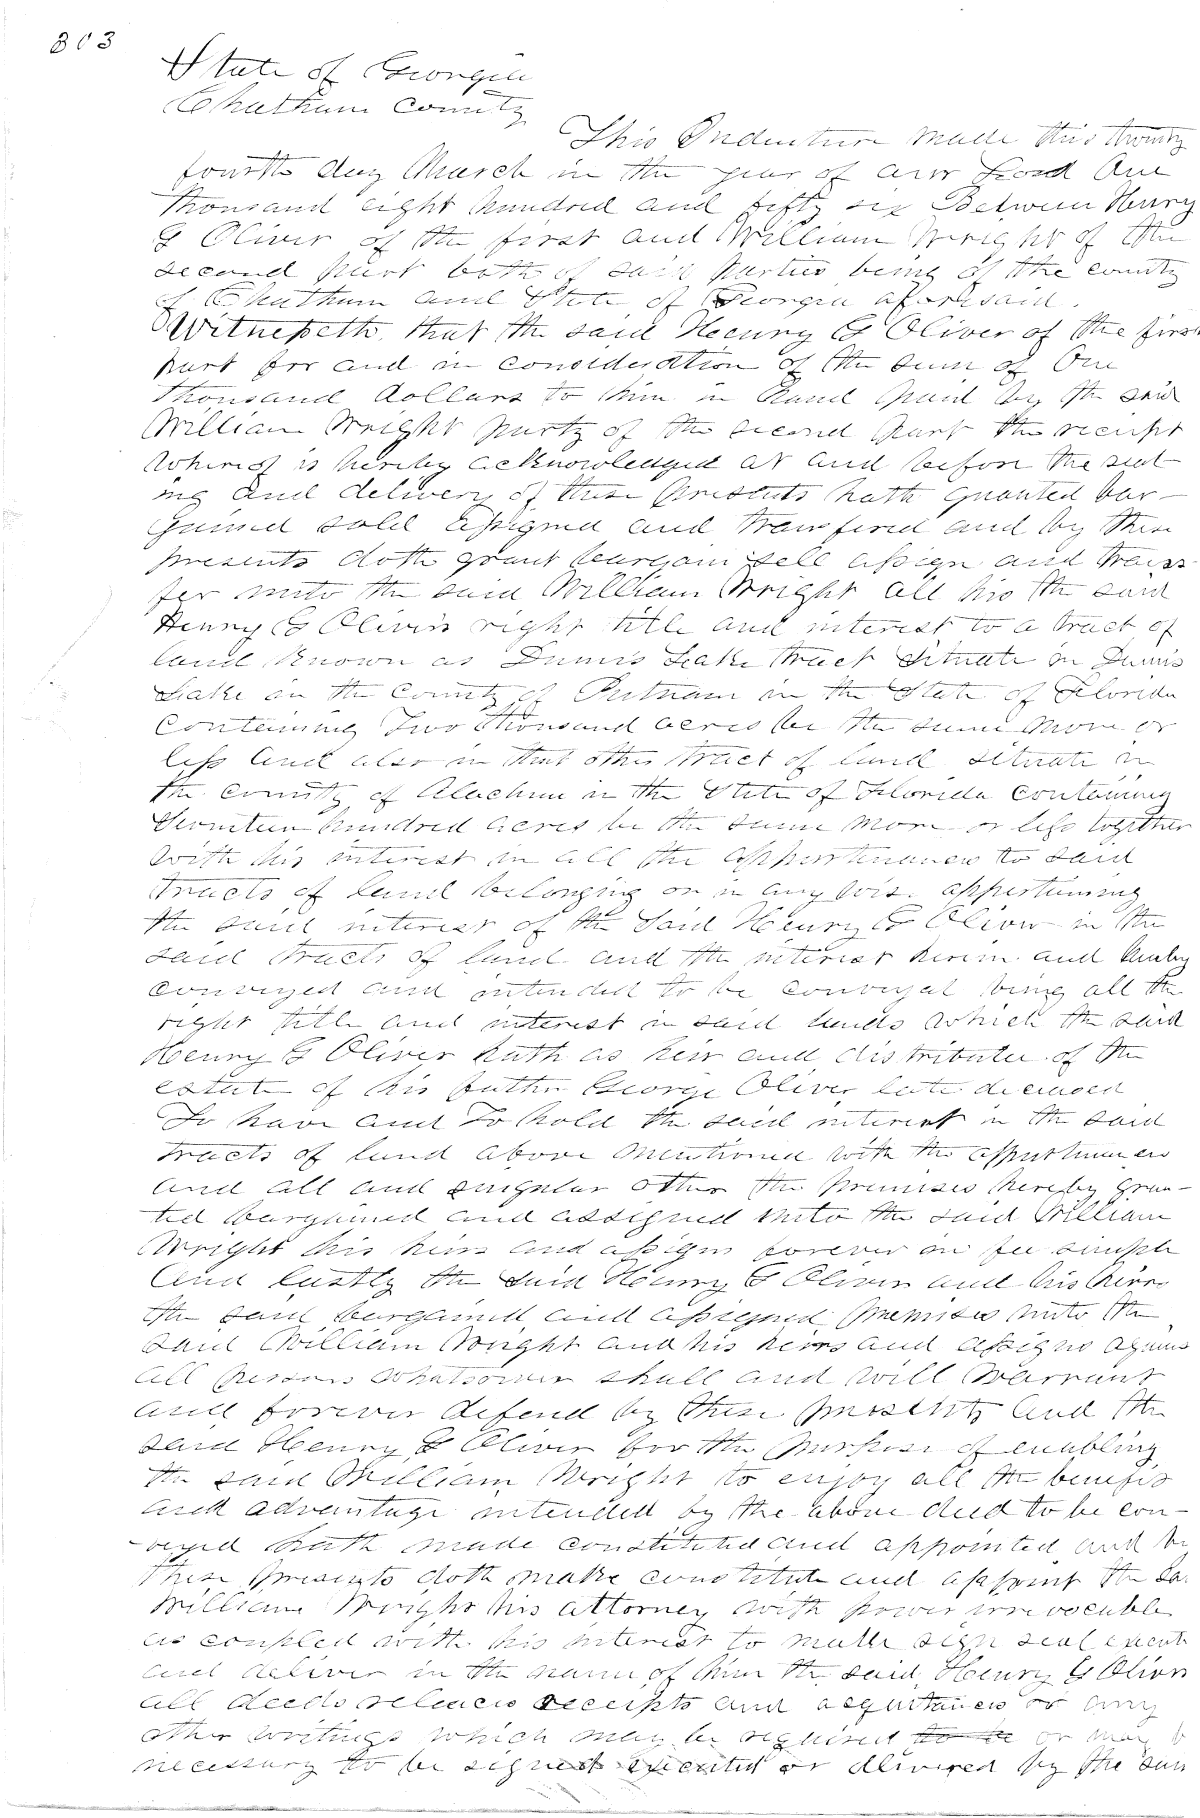 303
State of Georgia
Chatham County
This Indenture made this twenty
fourth day March in the year of our Lord One
thousand eight hundred and fifty six Between Henry
G Oliver of the first and William Wright of the
second part both of said parties being of the county
of Chatham and State of Georgia aforesaid.
Witnesseth that the said Henry G Oliver of the first
part for and in consideration of the sum of One
thousand dollars to him in hand paid by the said
William Wright party of the second part the receipt
whereof is hereby acknowledged at and before the seal
ing and delivery of these presents hath granted bar-
gained sold assigned and transfered and by these
presents doth grant bargain sell assign and trans-
fer unto the said William Wright all his the said
Henry G Olivers right title and interest to a tract of
land known as Dunns Lake tract situate in Dunns
Lake in the County of Putnam in the State of Florida
containing Two thousand acres be the same more or
less and also in that other tract of land situate in
the county of Alachua in the State of Florida containing
Seventeen hundred acres be the same more or less together
with his interest in all the appurtenances to said
tracts of land belonging or in any wise appertaining
the said interest of the said Henry G Oliver in the
said tracts of land and the interest herein and hereby
conveyed and intended to be conveyed being all the
right title and interest in said lands which the said
Henry G Oliver hath as heir and distributee of the
estate of his father George Oliver late deceased
To have and To hold the said interest in the said
tracts of land above mentioned with the appurtenances
and all and singular other the premises hereby gran-
ted bargained and assigned unto the said William
Wright his heirs and assigns forever in fee simple
And lastly the said Henry G Oliver and his heirs
the said bargained and assigned premises unto the
said William Wright and his heirs and assigns agains
all persons whatsoever shall and will warrant
and forever defend by these presents And the
said Henry G Oliver for the purpose of enabling
the said William Wright to enjoy all the benefit
and advantage intended by the above deed to be con-
-veyed hath made constituted and appointed and by
these presents doth make constitute and appoint the sa
William Wright his attorney with power irrevocable
as coupled with his interest to make sign seal execute
and deliver in the name of him the said Henry G Oliver
all deeds releases receipts and acquitances or any
other writings which may be required to be or may b
necessary to be signed executed or delivered by the said